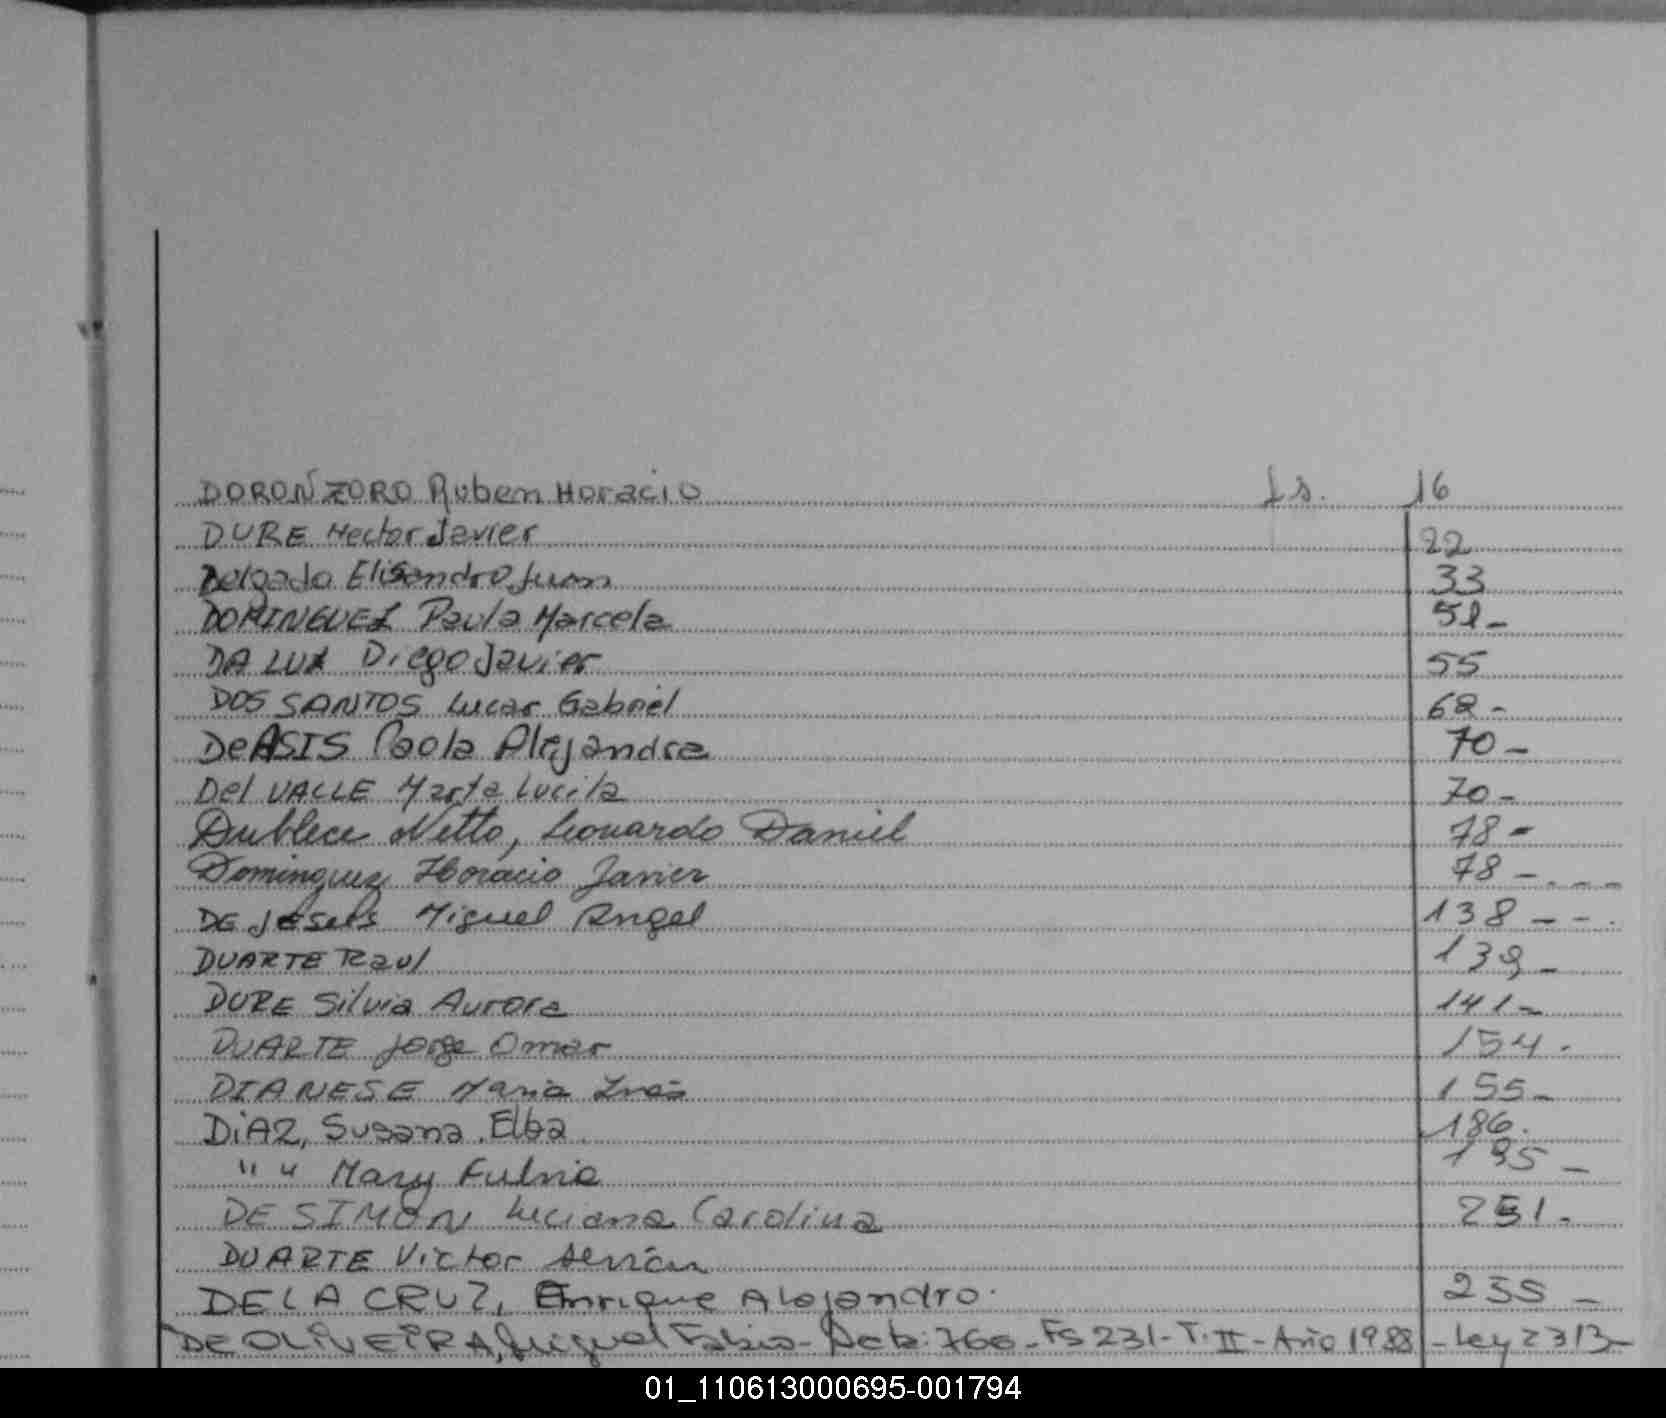 DOROÑZORO Ruben Horacio fs. 16
DURE Hector Javier 22
Delgado Elisandro Juan 33
DOMINGUEZ Paula Marcela 51-
DA LUZ Diego Javier 55
DOS SANTOS Lucas Gabriel 62-
De ASIS Paola Alejandra 70-
Del VALLE Marta Lucila 70-
Dublece Netto, Leonardo Daniel 78-
Dominguez Horacio Javier 78-
DE JESUS Miguel Angel 138-
DUARTE Raul 139-
DURE Silvia Aurora 141-
DUARTE Jorge Omar 154.
DIANESE Maria Inés 155-
DIAZ, Susana Elba 186.
" " Mary Fulvia 195-
DE SIMON Luciana Carolina 251.
DUARTE Victor
DE LA CRUZ, Enrique Alejandro. 235-
DE OLIVEIRA, Miguel Fabio- Acta: 760- Fs 231- T. II- Año 1988 - Ley 2313-
01_110613000695-001794